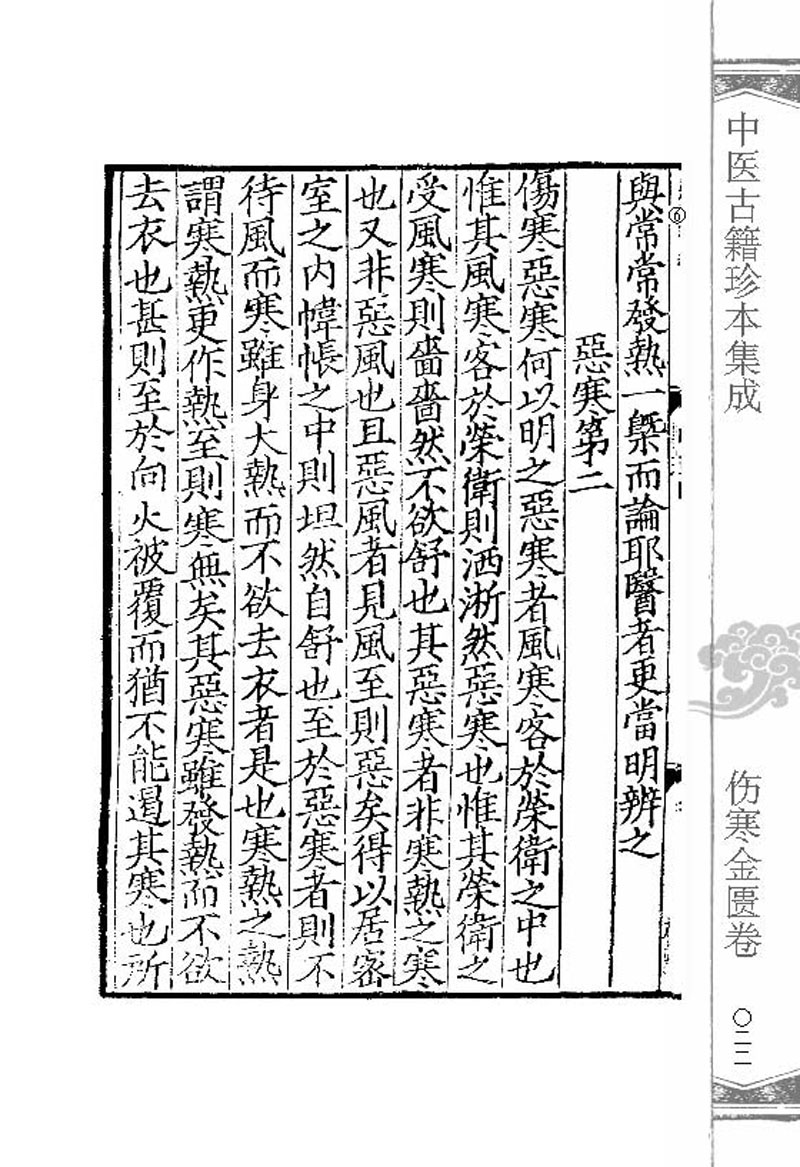 與常常發熱一槩而論耶醫者更當明辨之
惡寒第二
傷寒惡寒何以明之惡寒者風寒客於榮衛之中也
惟其風寒客於榮衛則洒淅然惡寒也惟其榮衛之
受風寒則嗇嗇然不欲舒也其惡寒者非寒熱之寒
也又非惡風也且惡風者見風至則惡矣得以居密
室之内幃帳之中則坦然自舒也至於惡寒者則不
待風而寒雖身大熱而不欲去衣者是也寒熱之熱
謂寒熱更作熱至則寒無矣其惡寒雖發熱而不欲
去衣也甚則至於向火被覆而猶不能遏其寒也所
⑥
中医古籍珍本集成
伤寒金匮卷
〇二二